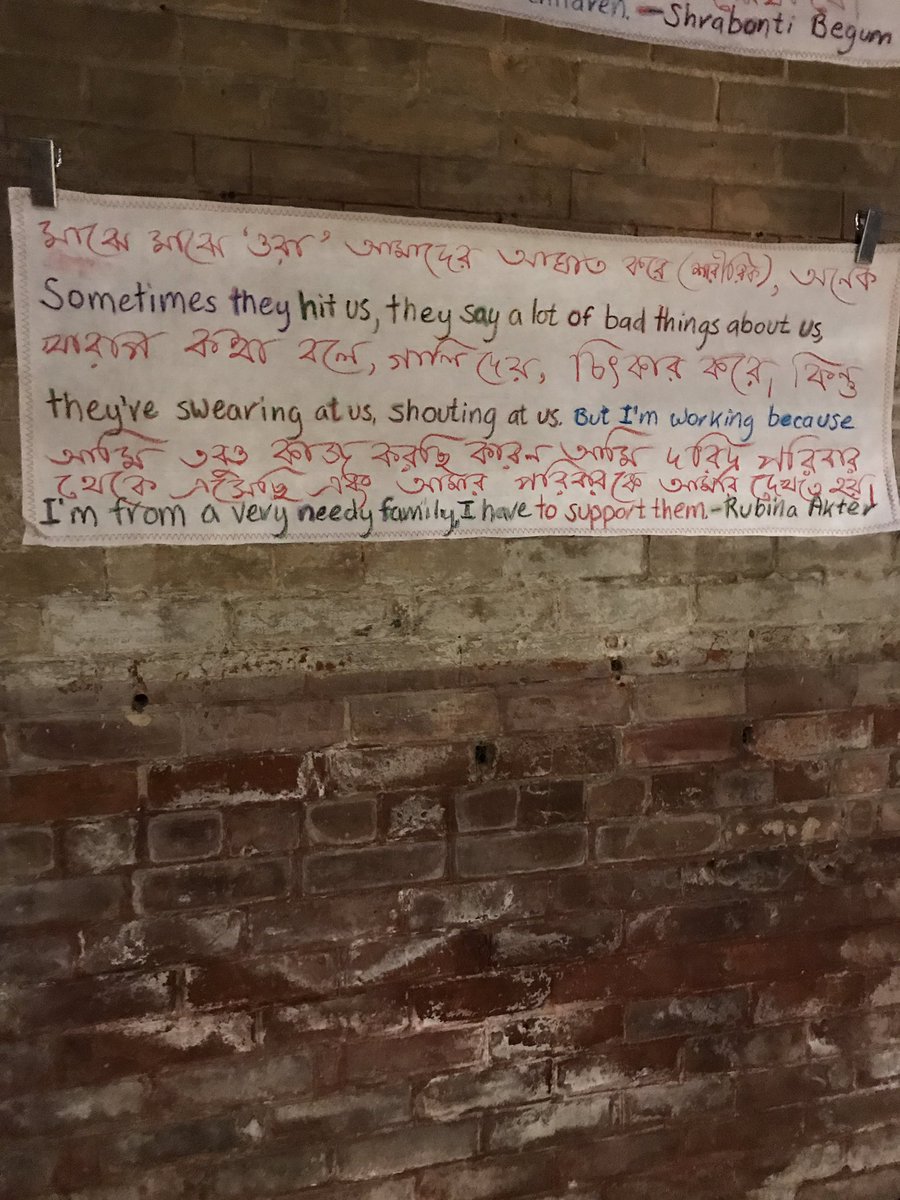 children. -Shrabonti Begum
মাঝে মাঝে 'ওরা' আমাদের আঘাত করে (শারীরিক), অনেক
Sometimes they hit us, they say a lot of bad things about us,
খারাপ কথা বলে, গালি দেয়, চিৎকার করে, কিন্তু
they've swearing at us, shouting at us. But I'm working because
আমি তবু কাজ করছি কারন আমি দরিদ্র পরিবার
থেকে এসেছি এবং আমার পরিবারকে আমার দেখতে হয়।
I'm from a very needy family, I have to support them.-Rubina Akter